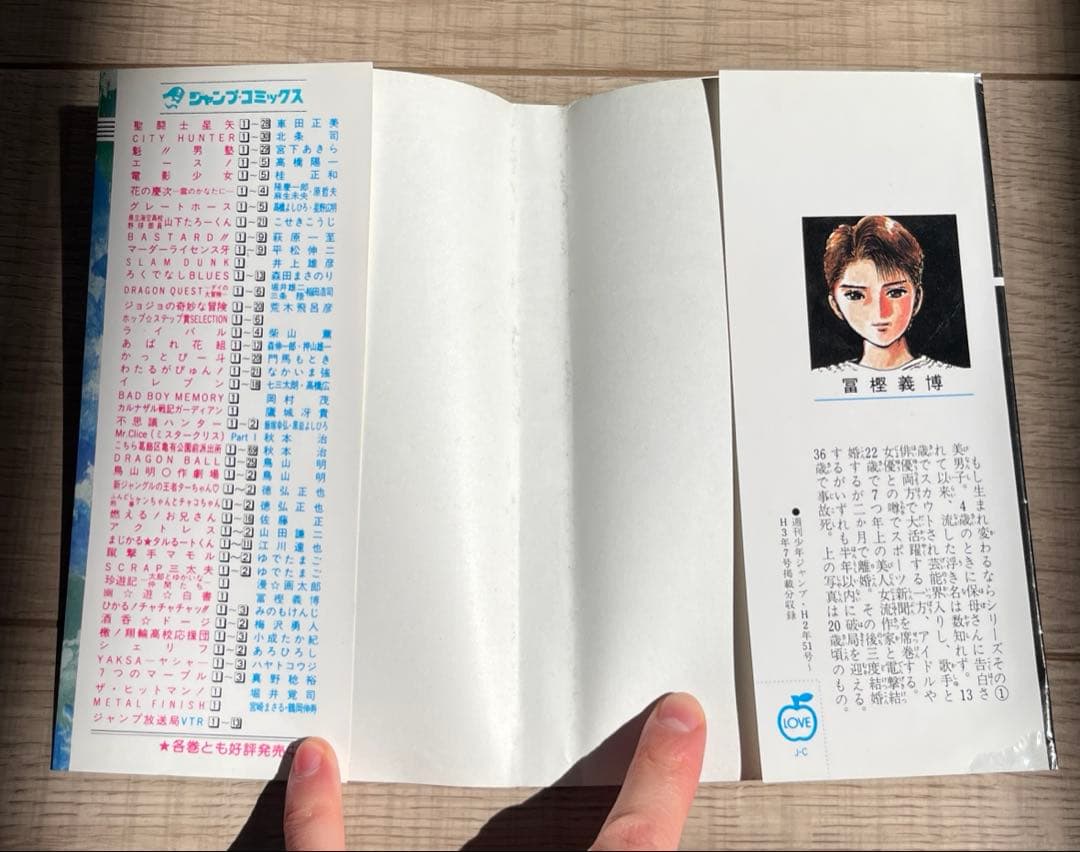 ジャンプ・コミックス
聖闘士星矢 1~28 車田正美
CITY HUNTER 1~ 北条司
魁!!男塾 1~ 宮下あきら
エース! 1~5 高橋陽一
電影少女 1~5 桂正和
花の慶次―雲のかなたに― 1~4 隆慶一郎・原哲夫 麻生未央
グレートホース 1~5 高橋よしひろ・
県立海空高校野球部員山下たろーくん 1~21 こせきこうじ
BASTARD!! 1~9 萩原一至
マーダーライセンス牙 1~9 平松伸二
SLAM DUNK 1 井上雄彦
ろくでなしBLUES 1~13 森田まさのり
DRAGON QUEST―ダイの大冒険― 1~6 堀井雄二 三条陸 稲田浩司
ジョジョの奇妙な冒険 1~20 荒木飛呂彦
ホップ☆ステップ賞SELECTION 1~6
ライバル 1~4 柴山薫
あばれ花組 1~ 押山雄一
かっとび一斗 1~ 門馬もとき
わたるがぴゅん! 1~21 なかいま強
イレブン 1~18 七三太朗・高橋広
BAD BOY MEMORY 1 岡村茂
カルナザル戦記ガーディアン 1 鷹城冴貴
不思議ハンター 1~2 飯塚幸弘・黒岩よしひろ
Mr.Clice(ミスタークリス) Part I 秋本治
こちら葛飾区亀有公園前派出所 1~ 秋本治
DRAGON BALL 1~ 鳥山明
鳥山明○作劇場 1~2 鳥山明
新ジャングルの王者ターちゃん♡ 1~2 徳弘正也
ふんどし刑事ケンちゃんとチャコちゃん 1~2 徳弘正也
燃える!お兄さん 1~16 佐藤正
アクトレス 1~2 山田謙二
まじかる★タルるートくん 1~11 江川達也
蹴撃手マモル 1~2 ゆでたまご
SCRAP三太夫 1~2 ゆでたまご
珍遊記―太郎とゆかいな仲間たち― 1 漫☆画太郎
幽☆遊☆白書 1 冨樫義博
ひかる!チャチャチャッ!! 1~3 みのもけんじ
酒呑☆ドージ 1~2 梅沢勇人
檄!翔輪高校応援団 1~3 小成たか紀
シェリフ 1~2 あろひろし
YAKSA―ヤシャ― 1~3 ハヤトコウジ
7つのマーブル 1~3 真野稔裕
ザ・ヒットマン! 1 堀井覚司
METAL FINISH 1 宮崎まさる・鶴岡伸寿
ジャンプ放送局VTR 1~13
★各巻とも好評発売
冨樫義博
もし生まれ変わるならシリーズその①
美男子。4歳のときに保母さんに告白さ
れて以来、流した浮き名は数知れず。13
歳でスカウトされ芸能界入りし、歌手と
俳優両方で大活躍する一方、アイドルや
女優との噂でスポーツ新聞を席巻する。
22歳で7つ年上の美人女流作家と電撃結
婚するが二か月で離婚。その後三度結婚
するがいずれも半年以内に破局を迎える。
36歳で事故死。上の写真は20歳頃のもの。
●週刊少年ジャンプ・H2年51号~
H3年7号掲載分収録
LOVE
J-C